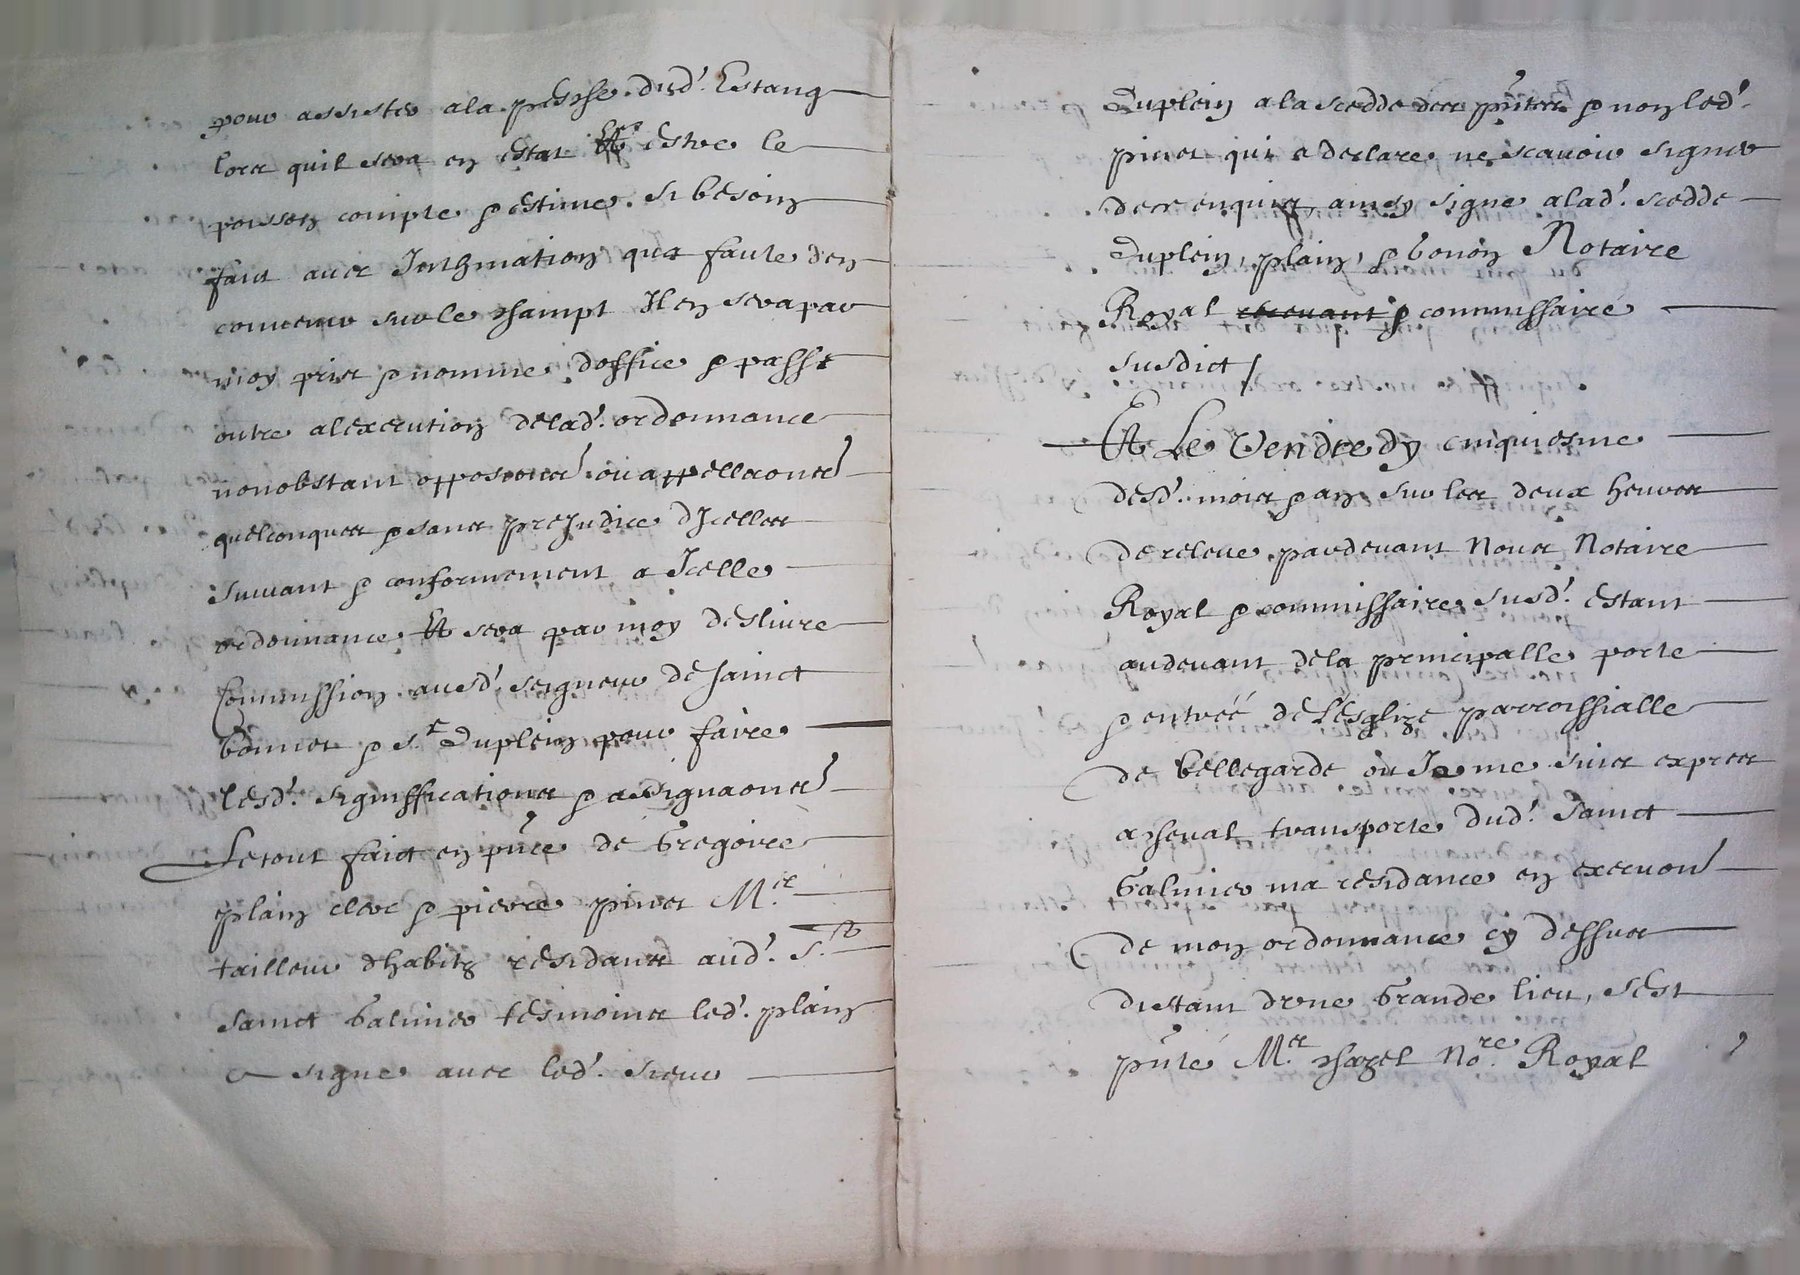 pour assister a la pesche dud. Estang
lors quil sera en estat Et estre le
poisson compte & estime si besoin
faict avec Inthimation que a faulte den
convenir sur le champt Il en sera par
moy pris & nomme doffice & passe
outre alexecution delad. ordonnance
nonobstant opposions ou appellaons
quelconques & sans prejudice dIcelles
suivant & conformement a Icelle
ordonnance Et sera par moy deslivre
Commission ausd. seigneur de sainct
bonnet & sr Duplein pour faire
lesd. signiffications & assignaons
Le tout faict en pnce de Gregoire
plain clerc & pierre pinet Me
tailleur dhabitz residants aud. St
sainct Galmier tesmoins led. plain
a signe avec led. sieur
Duplein a la scedde des pntes & non led.
pinet qui a declare ne scavoir signer
de ce enquis ainsy signe a lad. scedde
Duplein, plain, & bonon Notaire
Royal recevant & commissaire
susdict /
Et Le Vendredy cinquiesme
desd. mois & an sur les deux heures
de releve pardevant Nous Notaire
Royal & commissaire susd. estant
au devant de la principalle porte
& entreé de lesglize parroissialle
de bellegarde ou Je me suis expres
a cheval transporte dud. Sainct
Galmier ma residance en execuon
de mon ordonnance cy dessus
distant dune Grande lieu, sest
pnté Me chazel Nore Royal